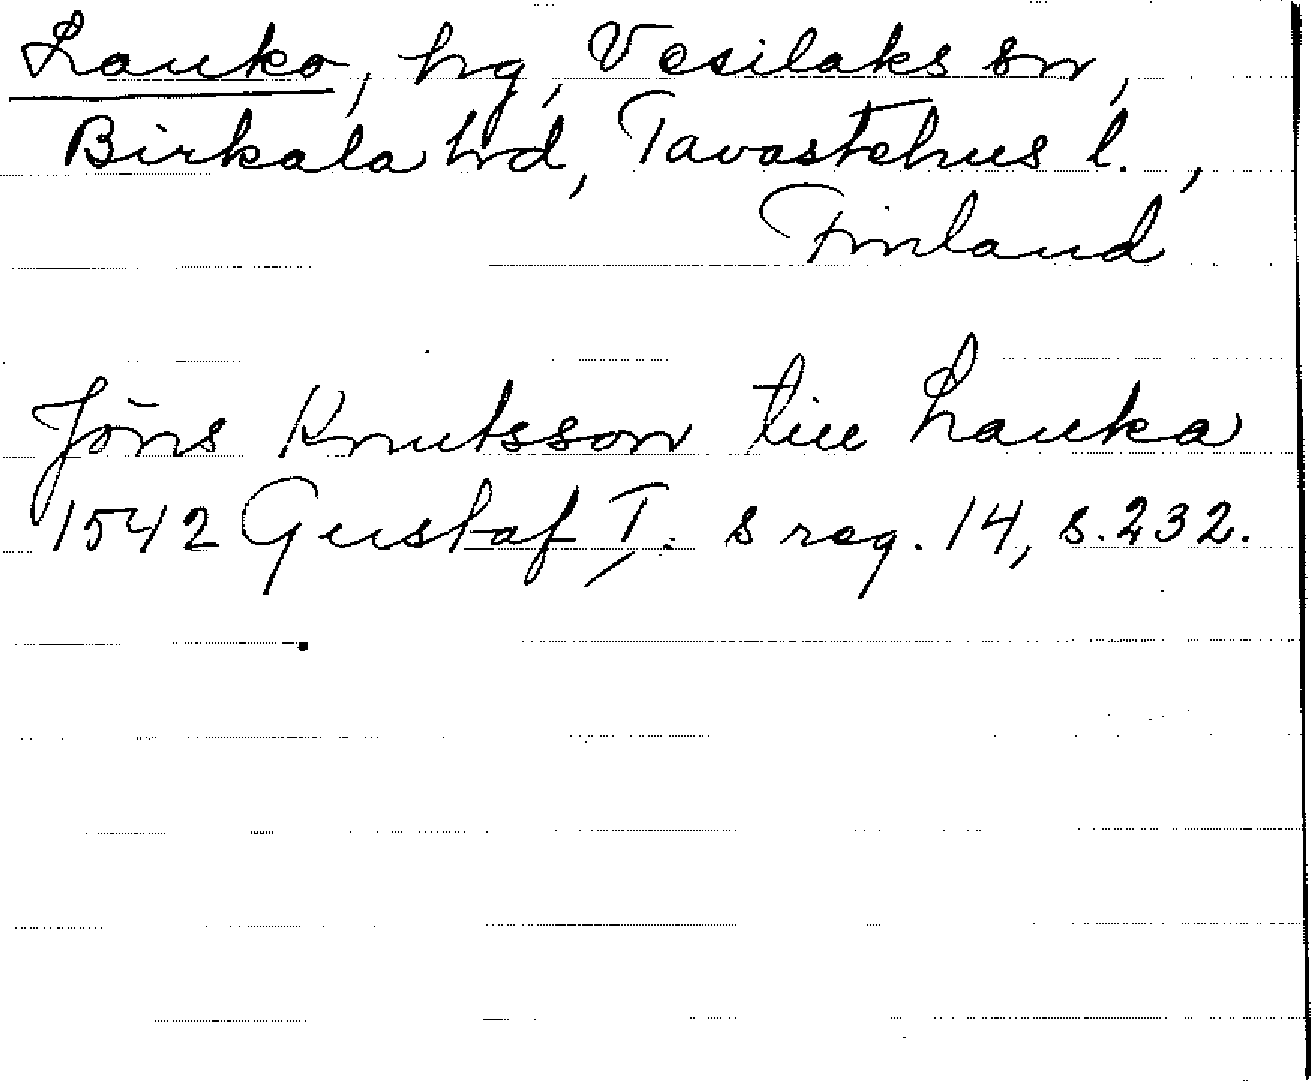 Lauko, hg, Vesilaks sn,
Birkala hd, Tavastehus l.,
Finland
Jöns Knutsson till Lauka
1542 Gustaf I. s reg. 14, s. 232.